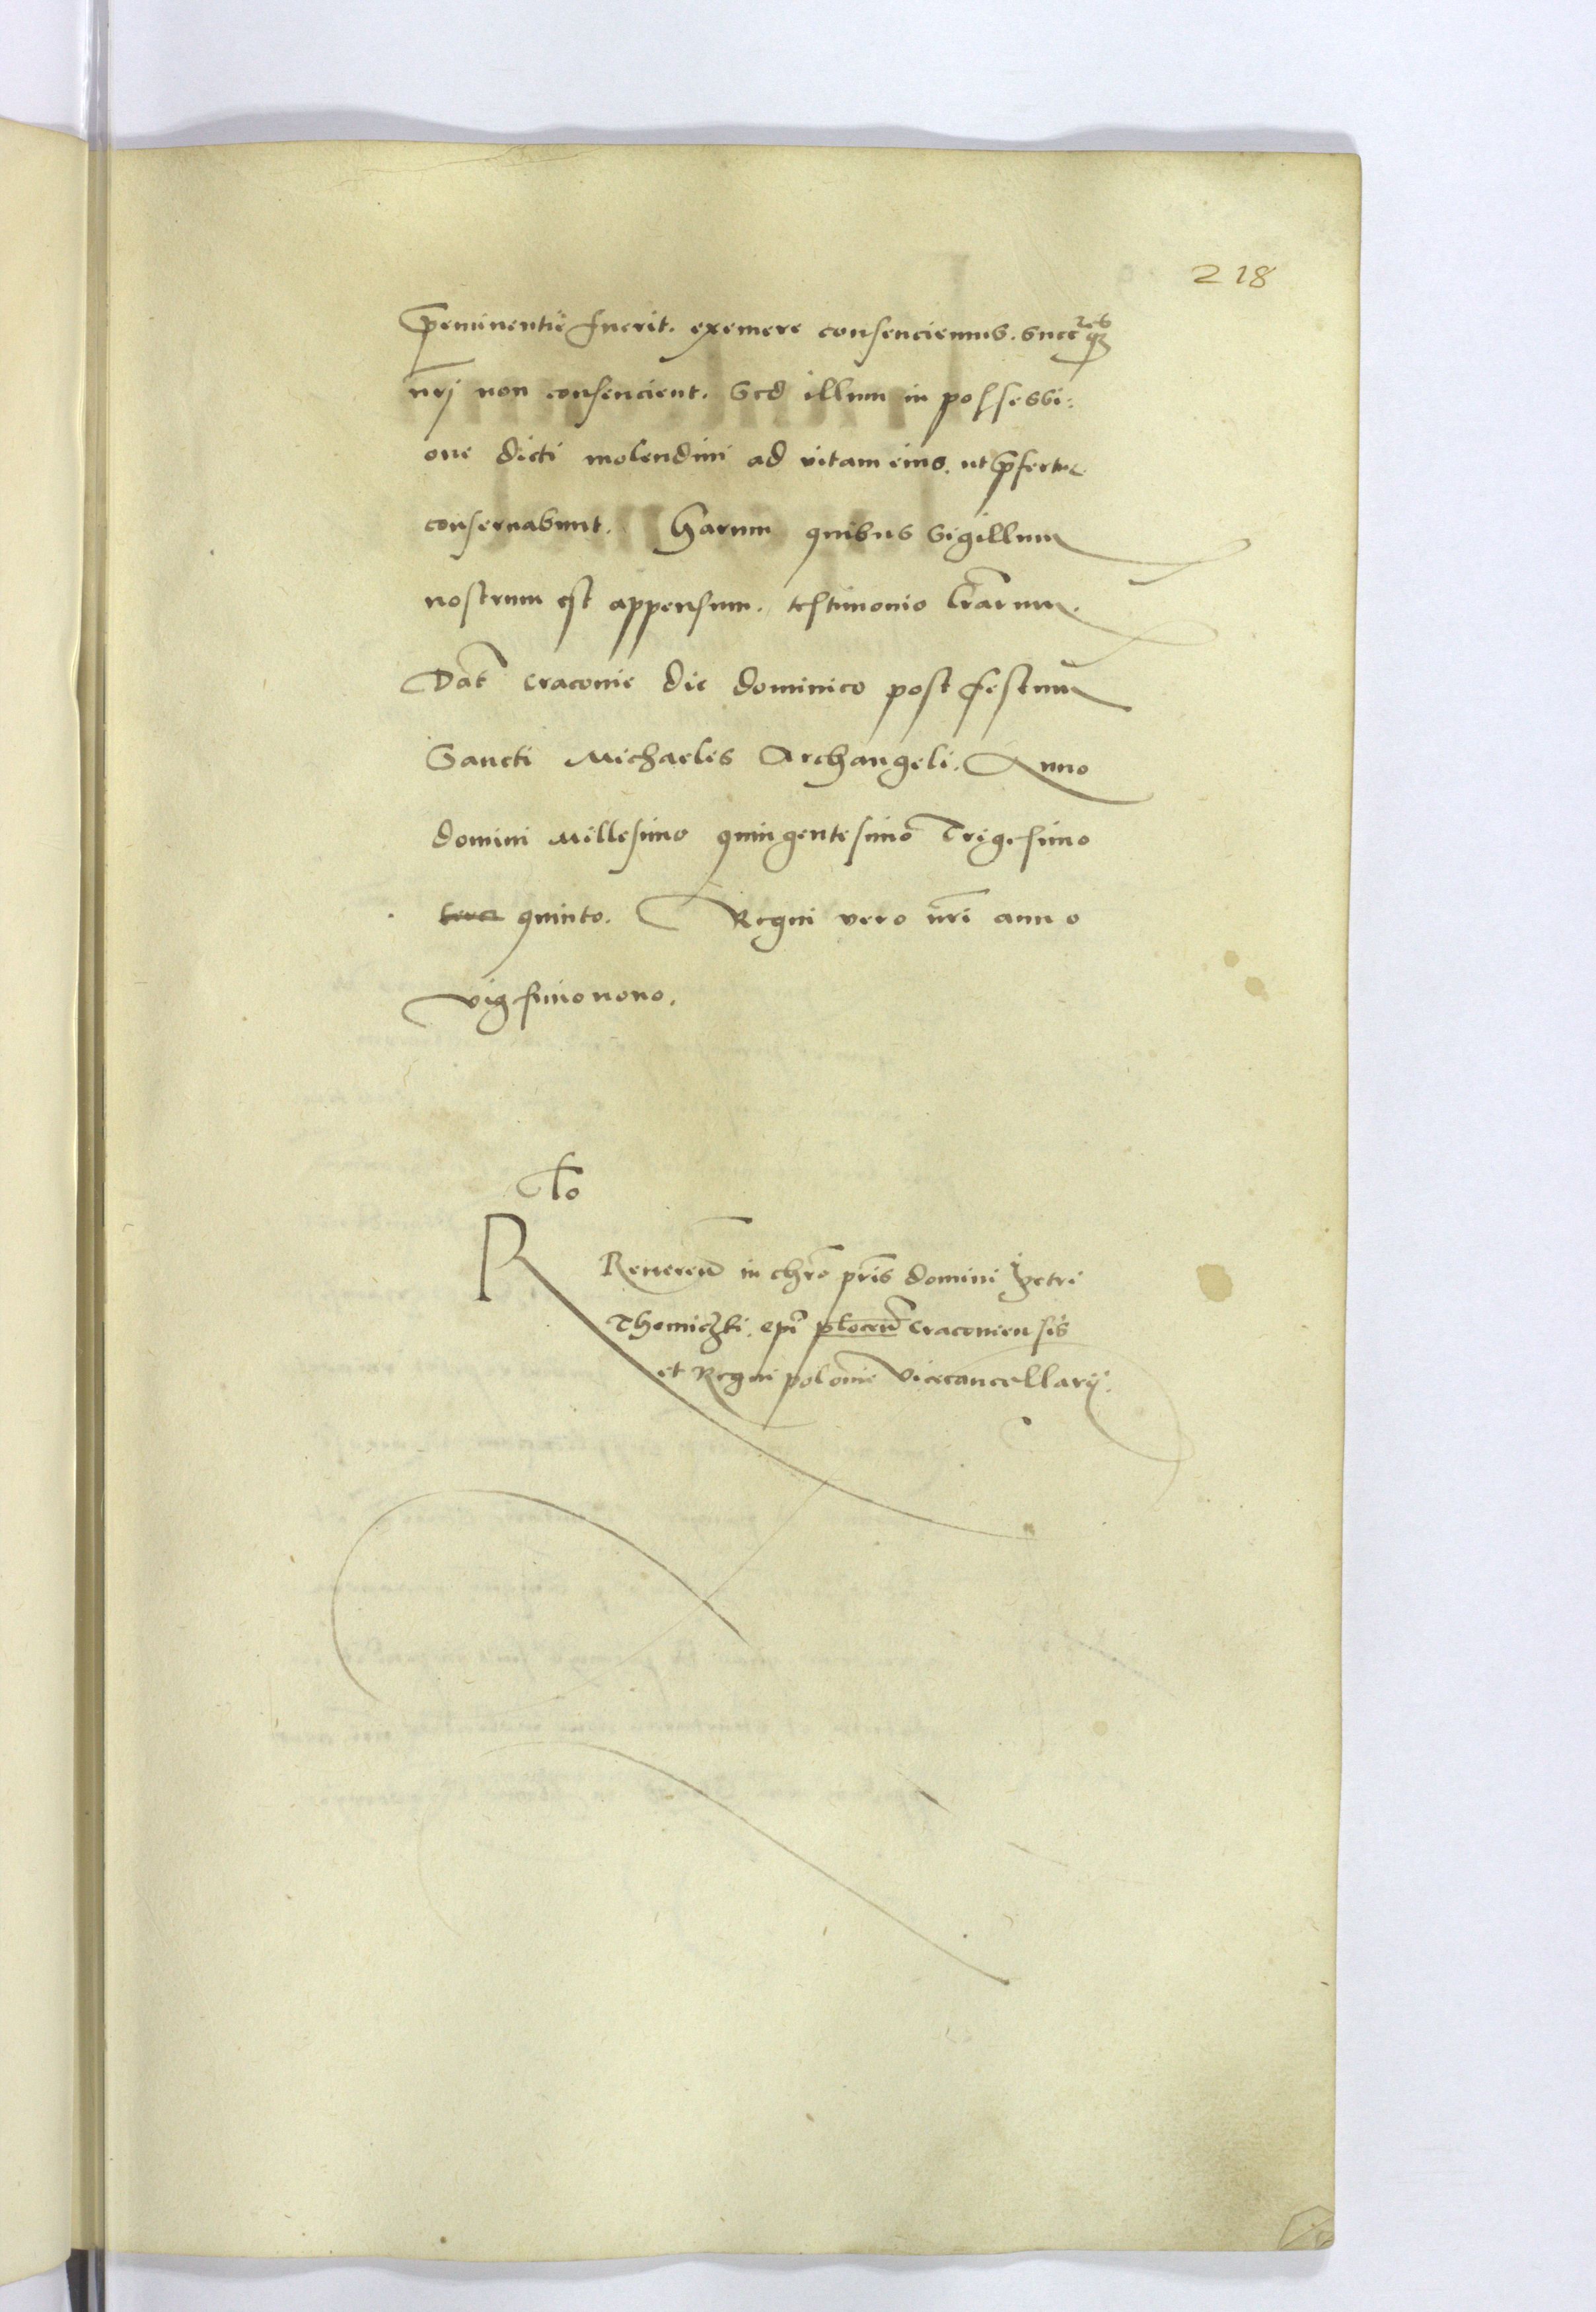 218
p̄eminentie fuerit. exemere consenciemus. Succ̄resq3
nr̄j non consencient. Sed illum in possessi:
one dicti molendini ad vitam eius. ut p̄fertur
conseruabunt. Harum quibus Sigillum
nostrum est appensum. testimonio lr̄arum.
Dat̄ Cracouie die dominico post festum
Sancti Michaelis Archangeli. Anno
domini Millesimo quingentesimo Trigesimo
terci quinto. Regni vero nr̄i anno
vigesimonono.
Rło
Reueren̄ in chr̄o pr̄is domini Petri
Thomiczki. ep̄i plocen̄ Cracouiensis
et Regni polonie Vicecancellarij.